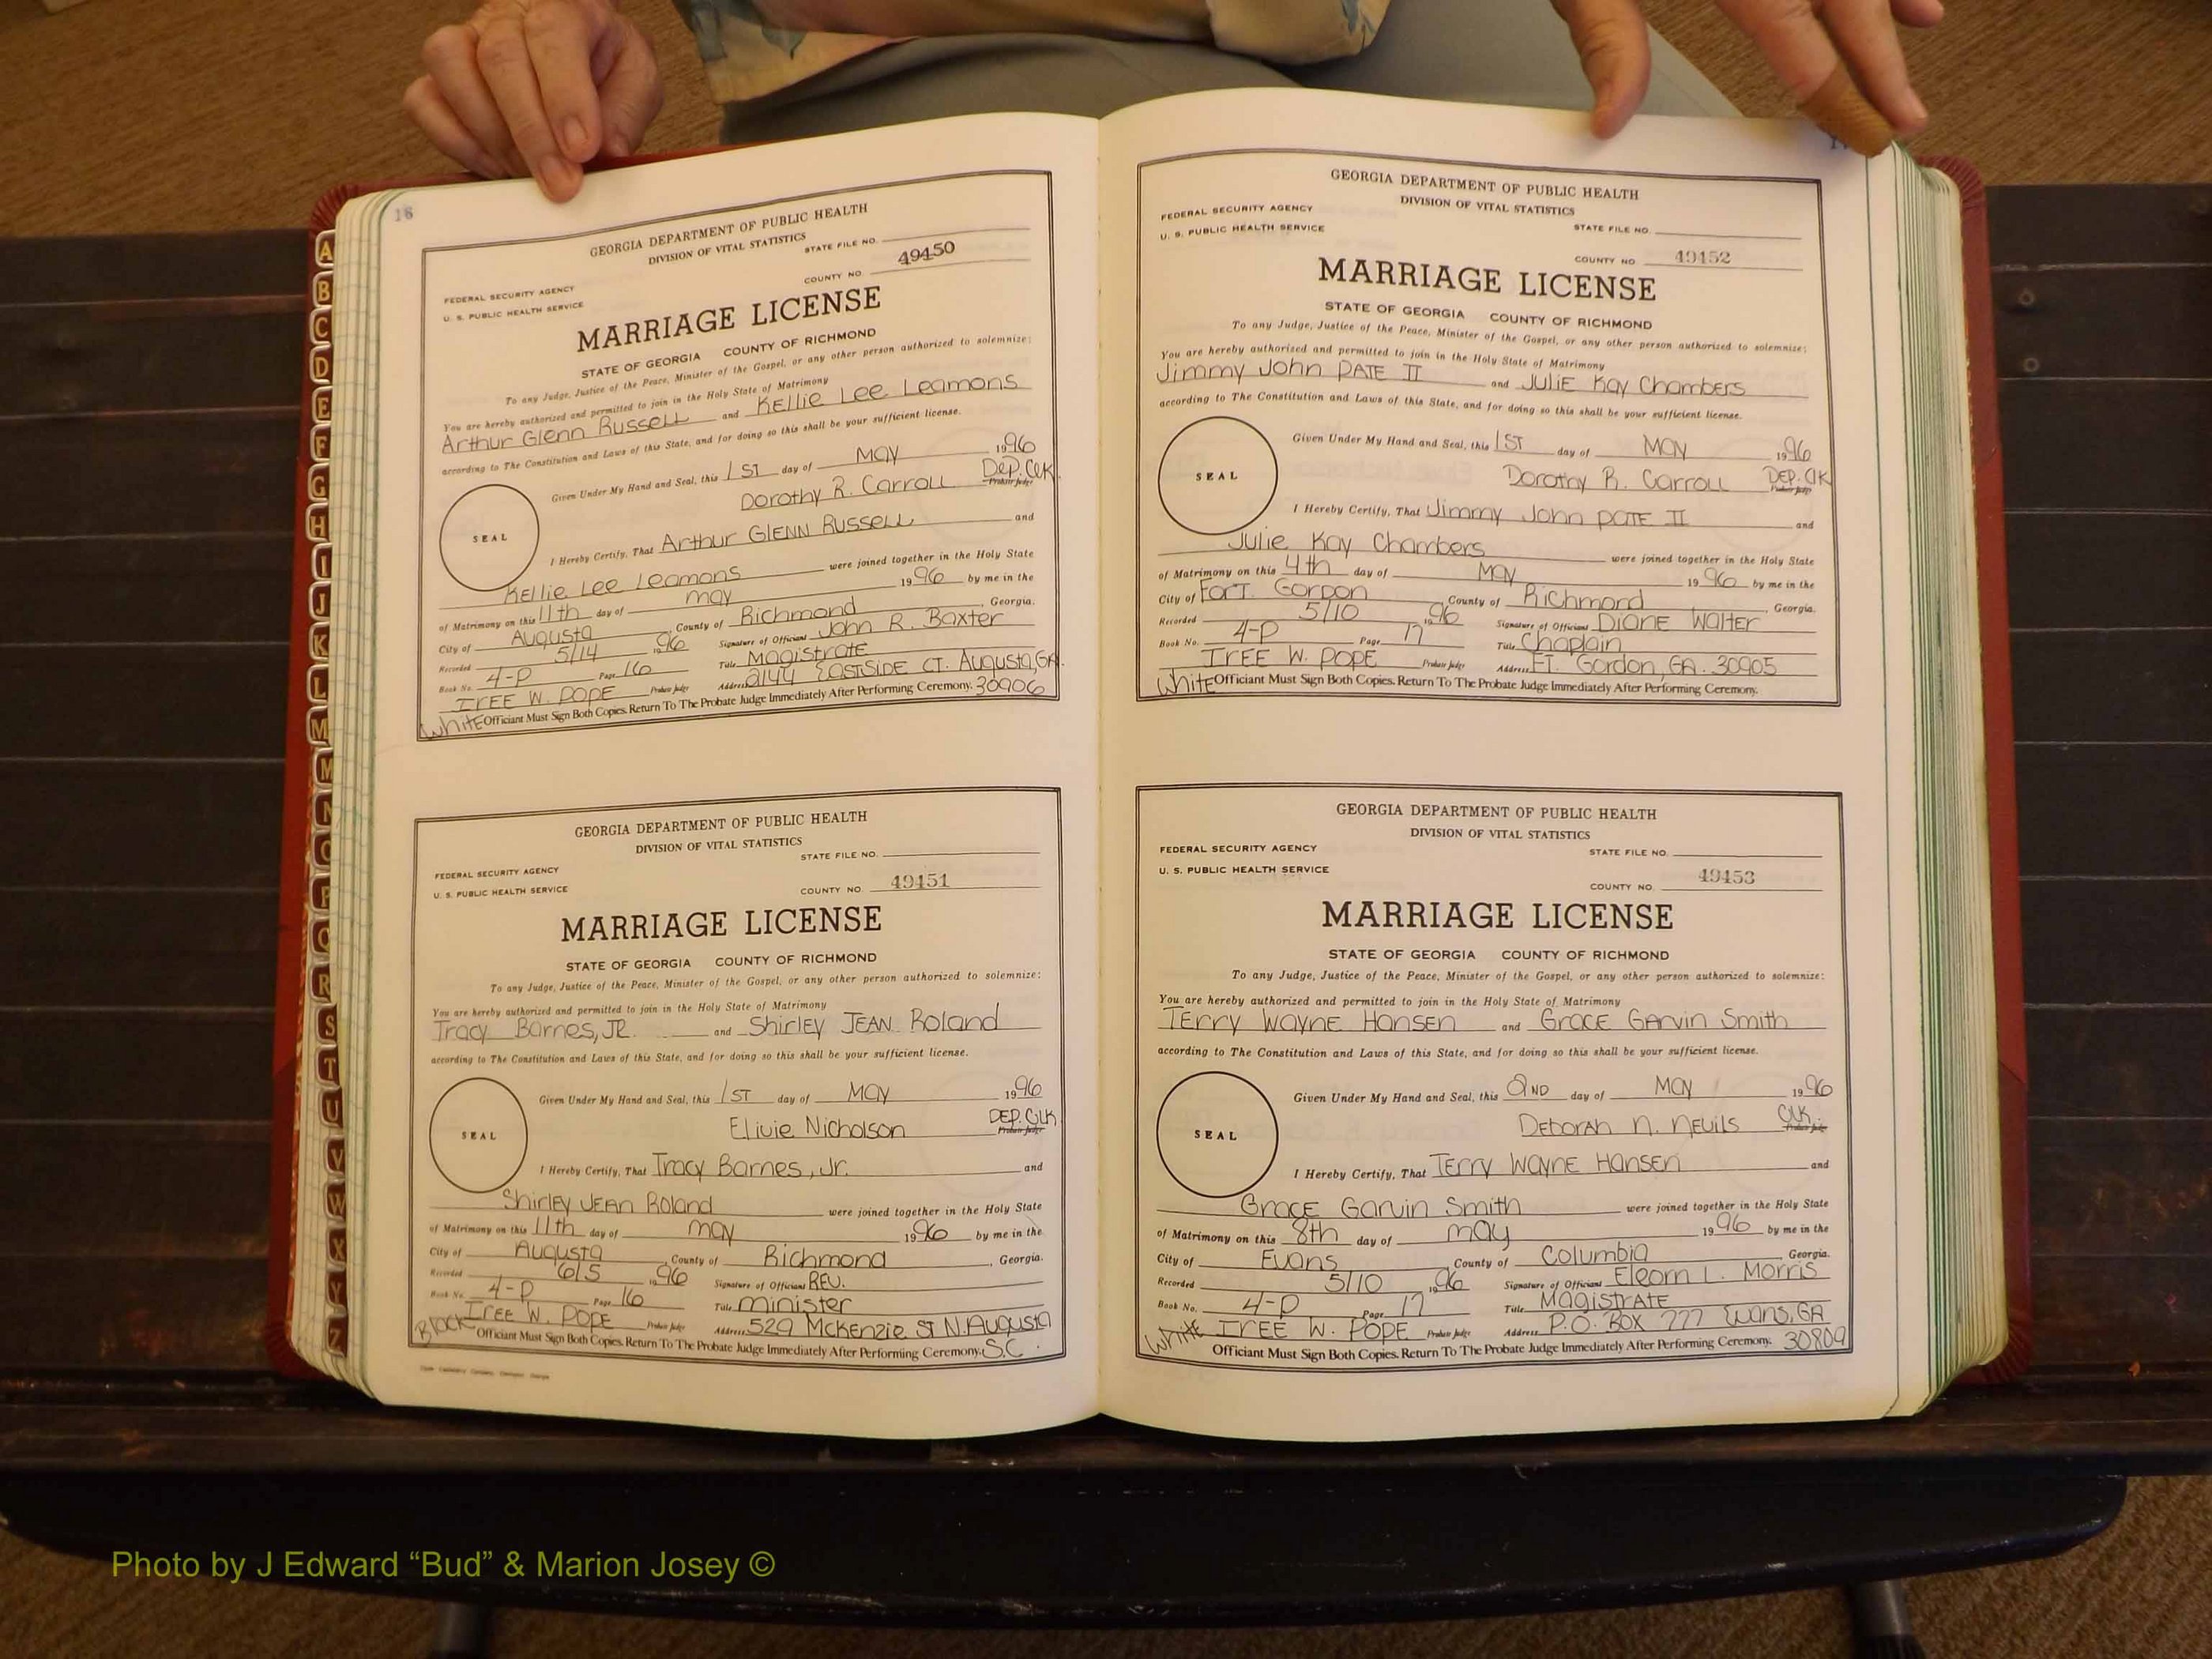 16
GEORGIA DEPARTMENT OF PUBLIC HEALTH
DIVISION OF VITAL STATISTICS
STATE FILE NO.
COUNTY NO. 49450
FEDERAL SECURITY AGENCY
U. S. PUBLIC HEALTH SERVICE
MARRIAGE LICENSE
STATE OF GEORGIA COUNTY OF RICHMOND
To any Judge, Justice of the Peace, Minister of the Gospel, or any other person authorized to solemnize:
You are hereby authorized and permitted to join in the Holy State of Matrimony
Arthur Glenn Russell and Kellie Lee Leamons
according to The Constitution and Laws of this State, and for doing so this shall be your sufficient license.
Given Under My Hand and Seal, this 1ST day of MAY 1996
Dorothy R. Carroll Dep. Clk Probate Judge
SEAL
I Hereby Certify, That Arthur GLENN RUSSELL and
Kellie Lee Leamons were joined together in the Holy State
of Matrimony on this 11th day of May 1996 by me in the
City of Augusta County of Richmond, Georgia.
Recorded 5/14 1996 Signature of Officiant John R. Baxter
Book No. 4-P Page 16 Title Magistrate
IREE W. POPE Probate Judge Address 2144 EASTSIDE CT. Augusta, GA.
White Officiant Must Sign Both Copies. Return To The Probate Judge Immediately After Performing Ceremony. 30906
GEORGIA DEPARTMENT OF PUBLIC HEALTH
DIVISION OF VITAL STATISTICS
STATE FILE NO.
FEDERAL SECURITY AGENCY
U. S. PUBLIC HEALTH SERVICE
COUNTY NO. 49451
MARRIAGE LICENSE
STATE OF GEORGIA COUNTY OF RICHMOND
To any Judge, Justice of the Peace, Minister of the Gospel, or any other person authorized to solemnize:
You are hereby authorized and permitted to join in the Holy State of Matrimony
Tracy Barnes, JR. and Shirley JEAN Roland
according to The Constitution and Laws of this State, and for doing so this shall be your sufficient license.
Given Under My Hand and Seal, this 1ST day of MAY 1996
Elivie Nicholson DEP. CLK Probate Judge
SEAL
I Hereby Certify, That Tracy Barnes, Jr. and
Shirley JEAN Roland were joined together in the Holy State
of Matrimony on this 11th day of May 1996 by me in the
City of Augusta County of Richmond, Georgia.
Recorded 6/5 1996 Signature of Officiant REV.
Book No. 4-P Page 16 Title Minister
IREE W. POPE Probate Judge Address 529 McKenzie ST N. Augusta
Black Officiant Must Sign Both Copies. Return To The Probate Judge Immediately After Performing Ceremony. S.C.
GEORGIA DEPARTMENT OF PUBLIC HEALTH
DIVISION OF VITAL STATISTICS
FEDERAL SECURITY AGENCY
U. S. PUBLIC HEALTH SERVICE
STATE FILE NO.
COUNTY NO 49452
MARRIAGE LICENSE
STATE OF GEORGIA COUNTY OF RICHMOND
To any Judge, Justice of the Peace, Minister of the Gospel, or any other person authorized to solemnize:
You are hereby authorized and permitted to join in the Holy State of Matrimony
Jimmy John PATE II and JULIE Kay Chambers
according to The Constitution and Laws of this State, and for doing so this shall be your sufficient license.
Given Under My Hand and Seal, this 1ST day of MAY 1996
Dorothy R. Carroll DEP. Clk Probate Judge
SEAL
I Hereby Certify, That Jimmy John PATE II and
Julie Kay Chambers were joined together in the Holy State
of Matrimony on this 4th day of MAY 1996 by me in the
City of Fort Gordon County of Richmond, Georgia.
Recorded 5/10 1996 Signature of Officiant DIANE Walter
Book No. 4-P Page 17 Title Chaplain
IREE W. POPE Probate Judge Address Ft. Gordon, GA. 30905
White Officiant Must Sign Both Copies. Return To The Probate Judge Immediately After Performing Ceremony.
GEORGIA DEPARTMENT OF PUBLIC HEALTH
DIVISION OF VITAL STATISTICS
FEDERAL SECURITY AGENCY
STATE FILE NO.
U. S. PUBLIC HEALTH SERVICE
COUNTY NO. 49453
MARRIAGE LICENSE
STATE OF GEORGIA COUNTY OF RICHMOND
To any Judge, Justice of the Peace, Minister of the Gospel, or any other person authorized to solemnize:
You are hereby authorized and permitted to join in the Holy State of Matrimony
TErry WAYNE HANSEN and GRACE GARVIN Smith
according to The Constitution and Laws of this State, and for doing so this shall be your sufficient license.
Given Under My Hand and Seal, this 2ND day of MAY 1996
DEborAh N. NEvils Clk. Probate Judge
SEAL
I Hereby Certify, That TErry WAYNE HANSEN and
GracE Garvin Smith were joined together in the Holy State
of Matrimony on this 8th day of may 1996 by me in the
City of Evans County of Columbia, Georgia.
Recorded 5/10 1996 Signature of Officiant Eleorn L. Morris
Book No. 4-P Page 17 Title MAGISTRATE
IREE W. POPE Probate Judge Address P.O. Box 777 Evans, GA
White Officiant Must Sign Both Copies. Return To The Probate Judge Immediately After Performing Ceremony. 30809
A
B
C
D
E
F
G
H
I
J
K
L
M
M
N
O
P
Q
R
S
T
U
V
W
X
Y
Z
Photo by J Edward “Bud” & Marion Josey ©